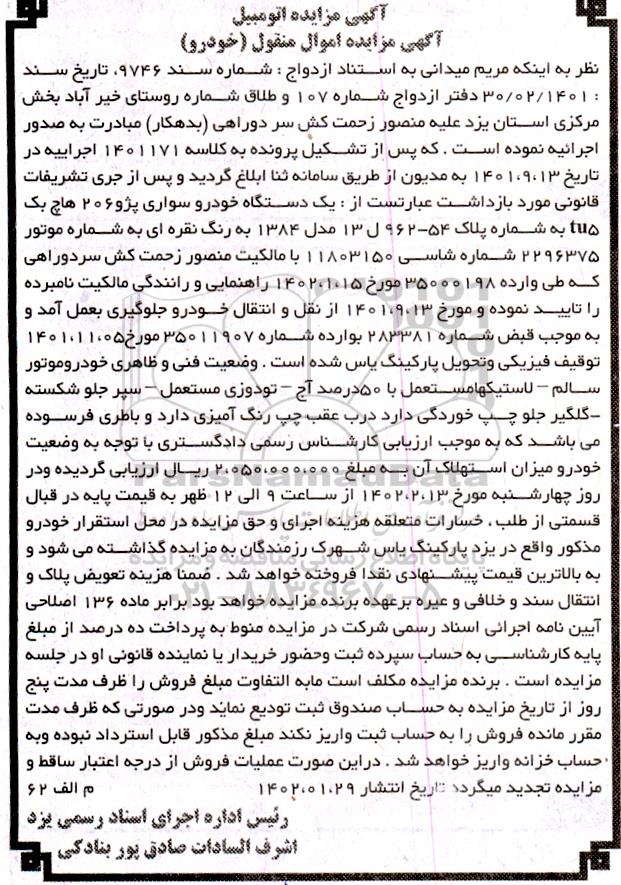 آگهی مزایده اتومبیل
آگهی مزایده اموال منقول (خودرو)
نظر به اینکه مریم میدانی به استناد ازدواج : شماره سند ۹۷۴۶، تاریخ سند
: ۳۰/۰۲/۱۴۰۱ دفتر ازدواج شماره ۱۰۷ و طلاق شماره روستای خیر آباد بخش
مرکزی استان یزد علیه منصور زحمت کش سر دوراهی (بدهکار) مبادرت به صدور
اجرائیه نموده است . که پس از تشکیل پرونده به کلاسه ۱۴۰۱۱۷۱ اجراییه در
تاریخ ۱۴۰۱،۹،۱۳ به مدیون از طریق سامانه ثنا ابلاغ گردید و پس از جری تشریفات
قانونی مورد بازداشت عبارتست از : یک دستگاه خودرو سواری پژو۲۰۶ هاچ بک
tu۵ به شماره پلاک ۵۴-۹۶۲ ل ۱۳ مدل ۱۳۸۴ به رنگ نقره ای به شماره موتور
۲۲۹۶۳۷۵ شماره شاسی ۱۱۸۰۳۱۵۰ با مالکیت منصور زحمت کش سردوراهی
که طی وارده ۳۵۰۰۰۱۹۸ مورخ ۱۴۰۲،۱،۱۵ راهنمایی و رانندگی مالکیت نامبرده
را تایید نموده و مورخ ۱۴۰۱،۹،۱۳ از نقل و انتقال خودرو جلوگیری بعمل آمد و
به موجب قبض شماره ۲۸۳۳۸۱ بوارده شماره ۳۵۰۱۱۹۰۷ مورخ۱۴۰۱،۱۱،۰۵
توقیف فیزیکی وتحویل پارکینگ یاس شده است . وضعیت فنی و ظاهری خودروموتور
سالم – لاستیکهامستعمل با ۵۰درصد آج – تودوزی مستعمل – سپر جلو شکسته
-گلگیر جلو چپ خوردگی دارد درب عقب چپ رنگ آمیزی دارد و باطری فرسوده
می باشد که به موجب ارزیابی کارشناس رسمی دادگستری با توجه به وضعیت
خودرو میزان استهلاک آن به مبلغ ۲،۰۵۰،۰۰۰،۰۰۰ ریال ارزیابی گردیده ودر
روز چهارشنبه مورخ ۱۴۰۲،۲،۱۳ از ساعت ۹ الی ۱۲ ظهر به قیمت پایه در قبال
قسمتی از طلب ، خسارات متعلقه هزینه اجرای و حق مزایده در محل استقرار خودرو
مذکور واقع در یزد پارکینگ یاس شهرک رزمندگان به مزایده گذاشته می شود و
به بالاترین قیمت پیشنهادی نقدا فروخته خواهد شد . ضمنا هزینه تعویض پلاک و
انتقال سند و خلافی و غیره برعهده برنده مزایده خواهد بود برابر ماده ۱۳۶ اصلاحی
آیین نامه اجرائی اسناد رسمی شرکت در مزایده منوط به پرداخت ده درصد از مبلغ
پایه کارشناسی به حساب سپرده ثبت وحضور خریدار یا نماینده قانونی او در جلسه
مزایده است . برنده مزایده مکلف است مابه التفاوت مبلغ فروش را ظرف مدت پنج
روز از تاریخ مزایده به حساب صندوق ثبت تودیع نماید ودر صورتی که ظرف مدت
مقرر مانده فروش را به حساب ثبت واریز نکند مبلغ مذکور قابل استرداد نبوده وبه
حساب خزانه واریز خواهد شد . دراین صورت عملیات فروش از درجه اعتبار ساقط و
مزایده تجدید میگردد تاریخ انتشار ۱۴۰۲،۰۱،۲۹ م الف ۶۲
رئیس اداره اجرای اسناد رسمی یزد
اشرف السادات صادق پور بنادکی
ParsNamadData
پایگاه اطلاع رسانی مناقصه و مزایده
۰۲۱-۸۸۳۴۹۶۷۰-۵